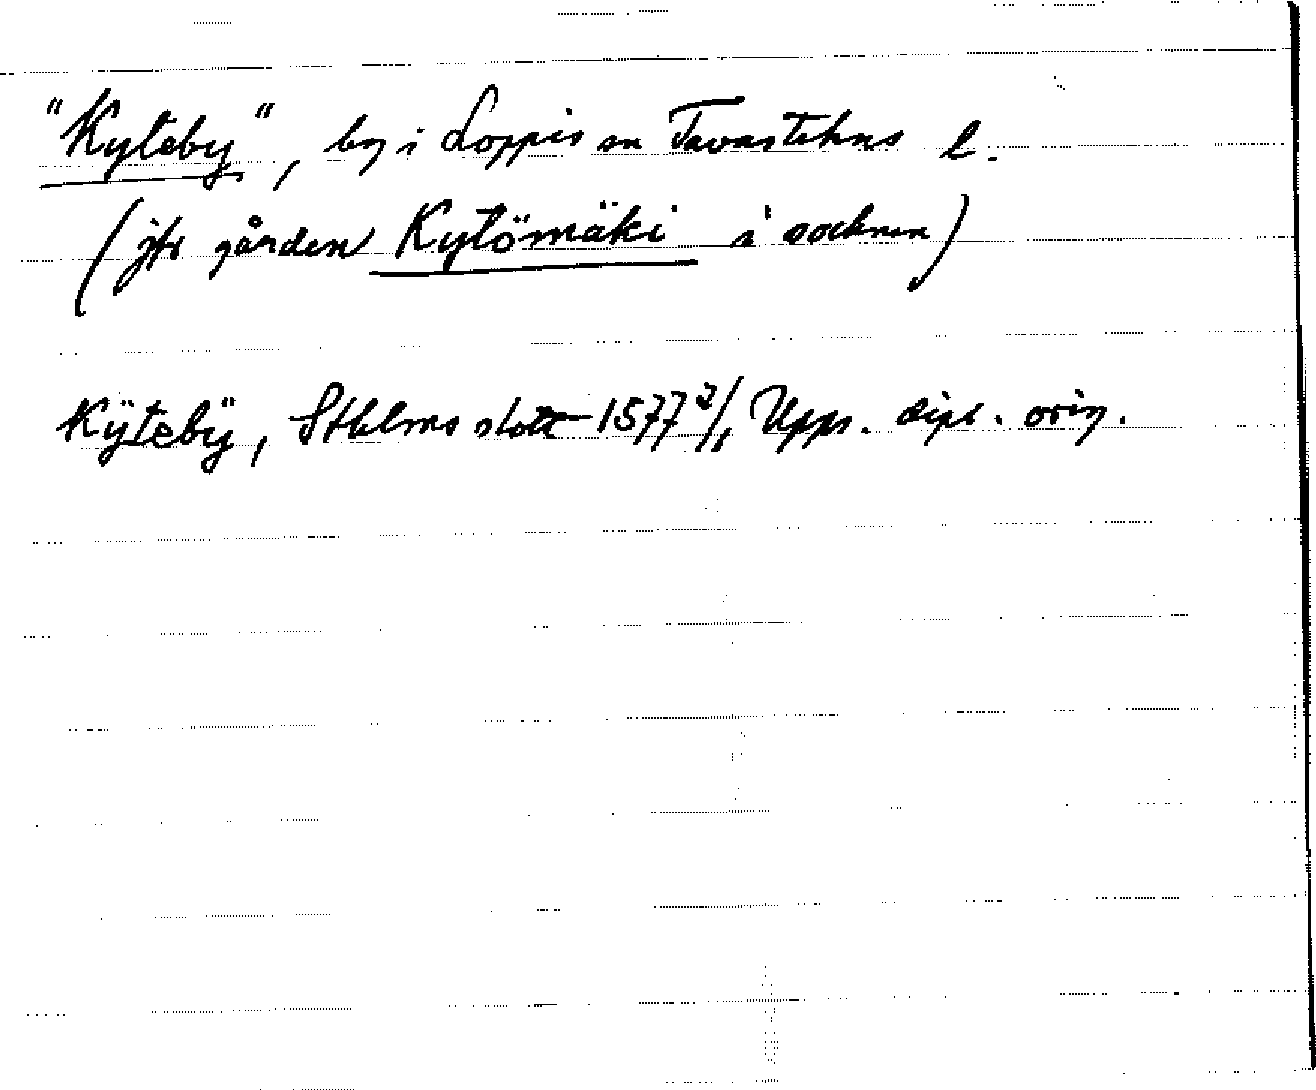 "Kyteby", by i Loppis sn Tavastehus l.
(jfr gården Kytömäki i socknen)
Kÿtebÿ, Sthlms slott 1577 2/1 Upps. dipl. orig.